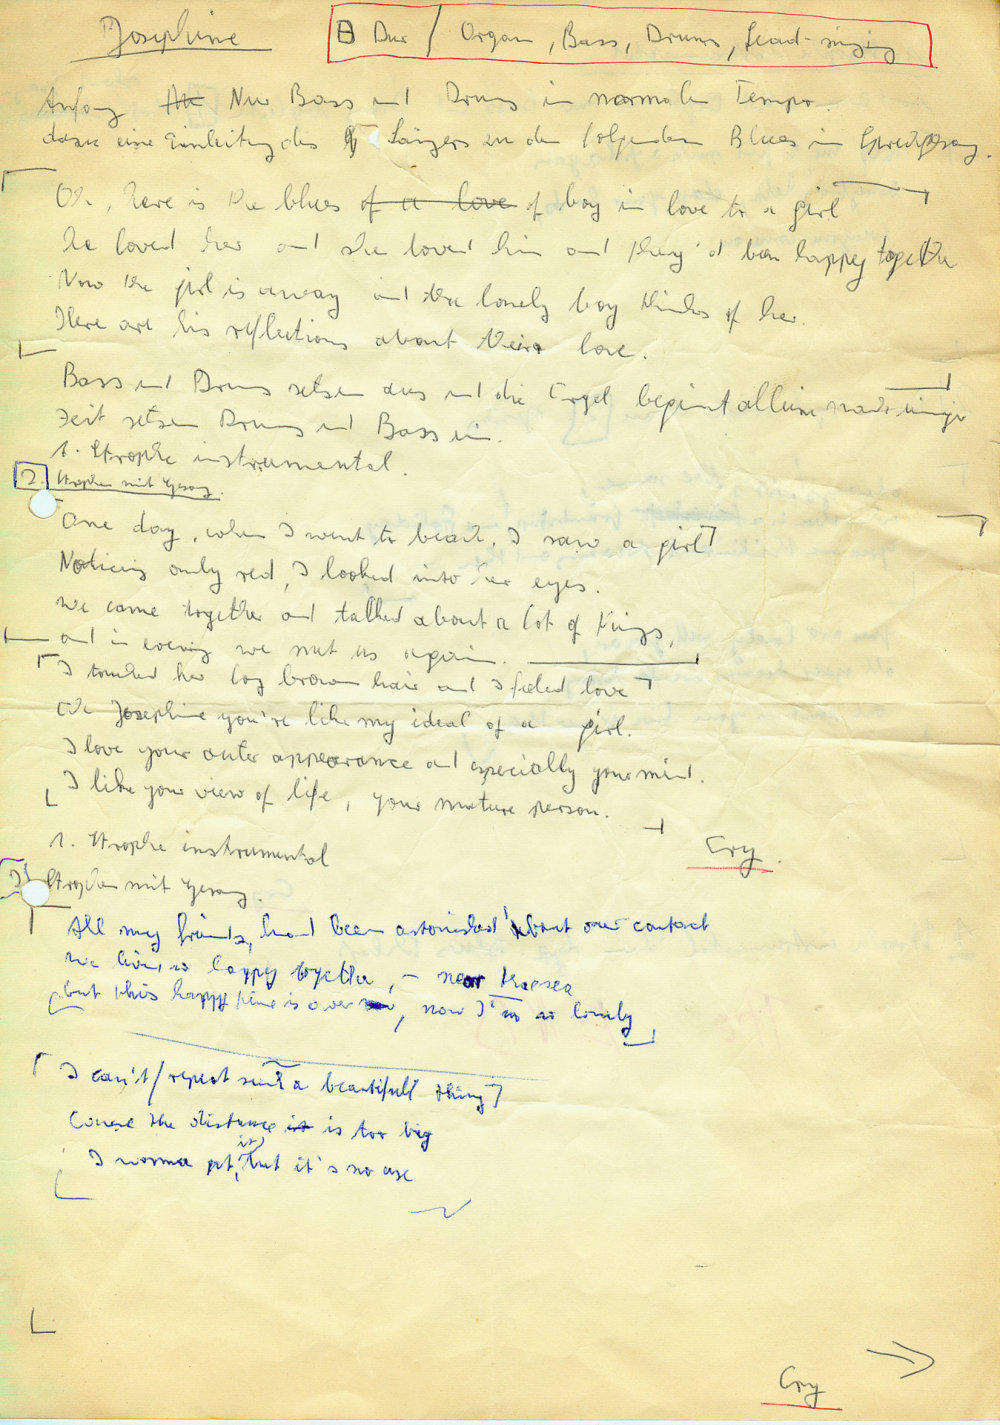 Josephine
B Dur / Organ, Bass, Drums, Lead-singing
Anfang Nur Bass und Drums in normalem Tempo.
dazu eine Einleitung des Sängers zu dem folgenden Blues in Sprechgesang.
Oh, here is the blues of a love of boy in love to a girl
he loved her and she loved him and they'd been happy together
Now the girl is away and the lonely boy thinks of her.
Here are his reflections about their love.
Bass und Drums setzen aus und die Orgel beginnt alleine nach einiger
Zeit setzen Drums und Bass ein.
1. Strophe instrumental.
2. Strophen mit Gesang.
One day, when I went to beach, I saw a girl
Noticing only red, I looked into her eyes.
We came together and talked about a lot of things,
and in evening we met us again.
I touched her long brown hair and I feeled love
Oh Josephine you're like my ideal of a girl.
I love your outer appearance and especially your mind.
I like your view of life, your mature person.
1. Strophe instrumental
Cry.
2 Strophen mit Gesang.
All my friends, had been astonished about our contact
We lived so happy together, – near the sea
but this happy time is over, now I'm so lonely
I can't / repeat such a beautifull thing
Cause the distance is is too big
it
I wonna get, but it's no use
Cry